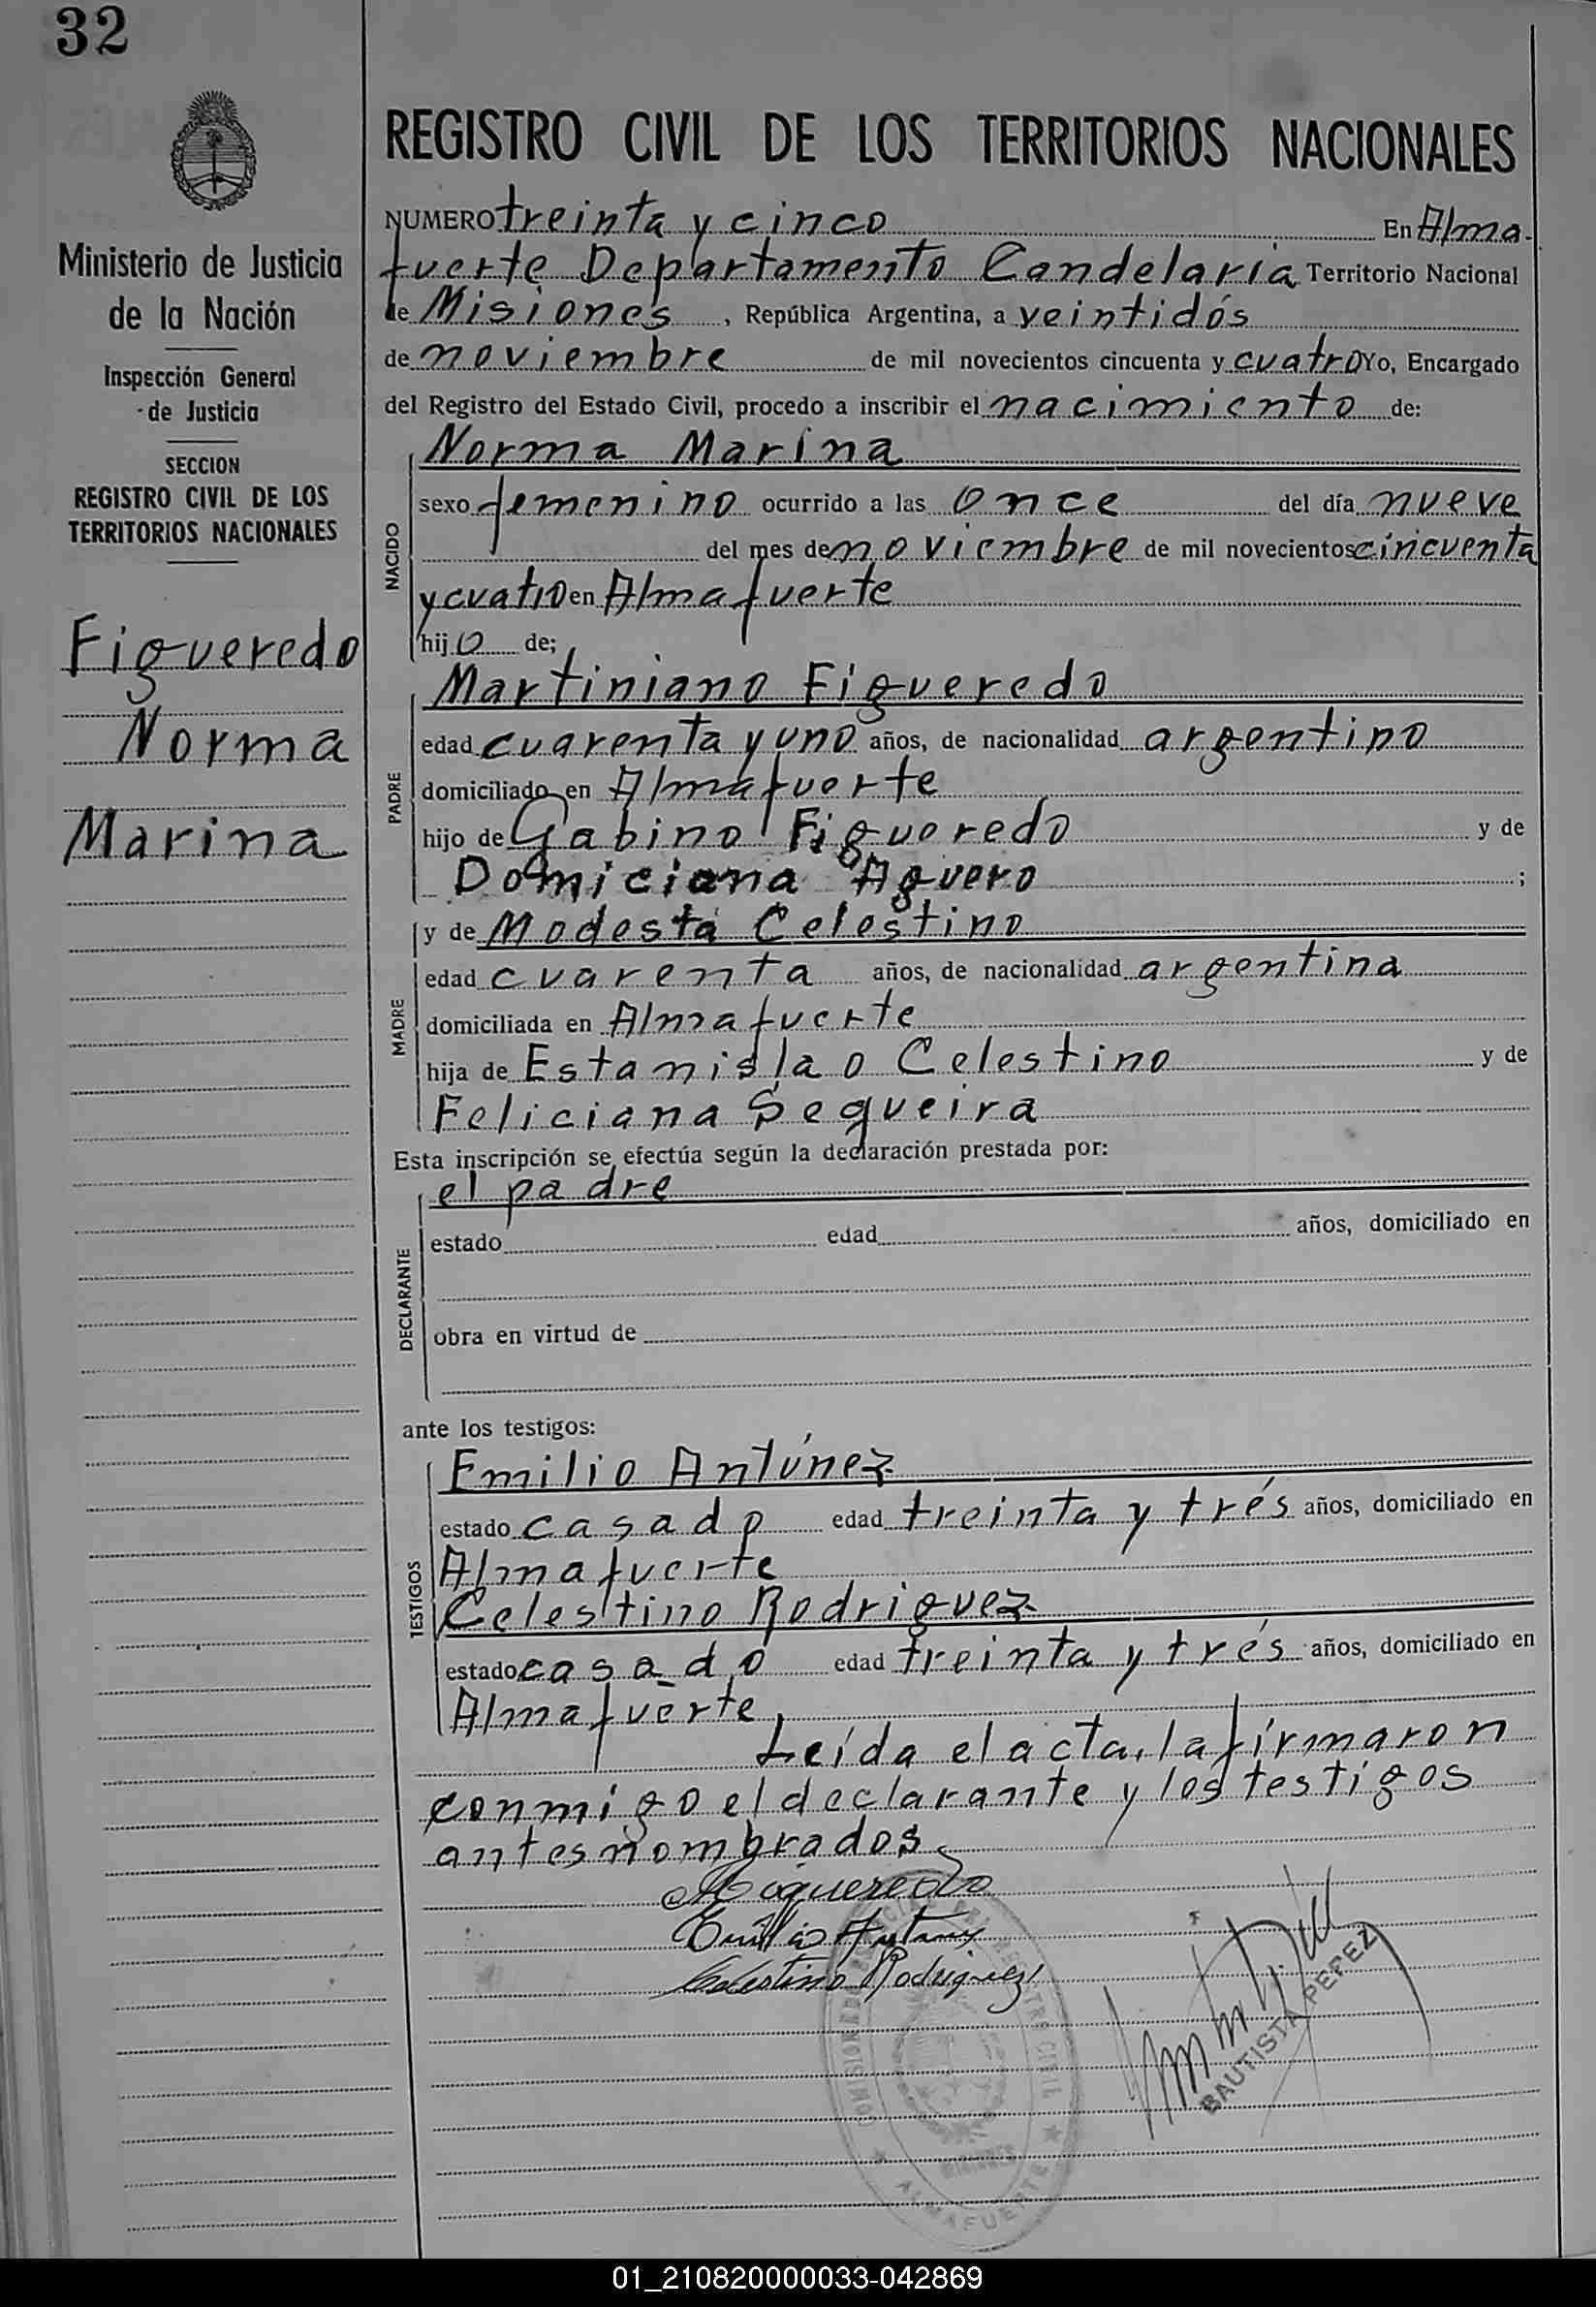 32
Ministerio de Justicia
de la Nación
Inspección General
de Justicia
SECCION
REGISTRO CIVIL DE LOS
TERRITORIOS NACIONALES
Figueredo
Norma
Marina
REGISTRO CIVIL DE LOS TERRITORIOS NACIONALES
NUMERO treinta y cinco En Alma-
fuerte Departamento Candelaria Territorio Nacional
de Misiones, República Argentina, a veintidós
de noviembre de mil novecientos cincuenta y cuatro Yo, Encargado
del Registro del Estado Civil, procedo a inscribir el nacimiento de:
NACIDO
Norma Marina
sexo femenino ocurrido a las once del día nueve
del mes de noviembre de mil novecientos cincuenta
y cuatro en Almafuerte
hijo de;
PADRE
Martiniano Figueredo
edad cuarenta y uno años, de nacionalidad argentino
domiciliado en Almafuerte
hijo de Gabino Figueredo y de
Domiciana Aguero;
MADRE
y de Modesta Celestino
edad cuarenta años, de nacionalidad argentina
domiciliada en Almafuerte
hija de Estanislao Celestino y de
Feliciana Sequeira
Esta inscripción se efectúa según la declaración prestada por:
DECLARANTE
el padre
estado edad años, domiciliado en
obra en virtud de
ante los testigos:
TESTIGOS
Emilio Antúnez
estado casado edad treinta y trés años, domiciliado en
Almafuerte
Celestino Rodriguez
estado casado edad treinta y trés años, domiciliado en
Almafuerte
Leída el acta, la firmaron
conmigo el declarante y los testigos
antes nombrados.
M Figueredo
Emilio Antunez
Celestino Rodriguez
BAUTISTA PEREZ
REGISTRO CIVIL
MISIONES
ALMAFUERTE
01_210820000033-042869